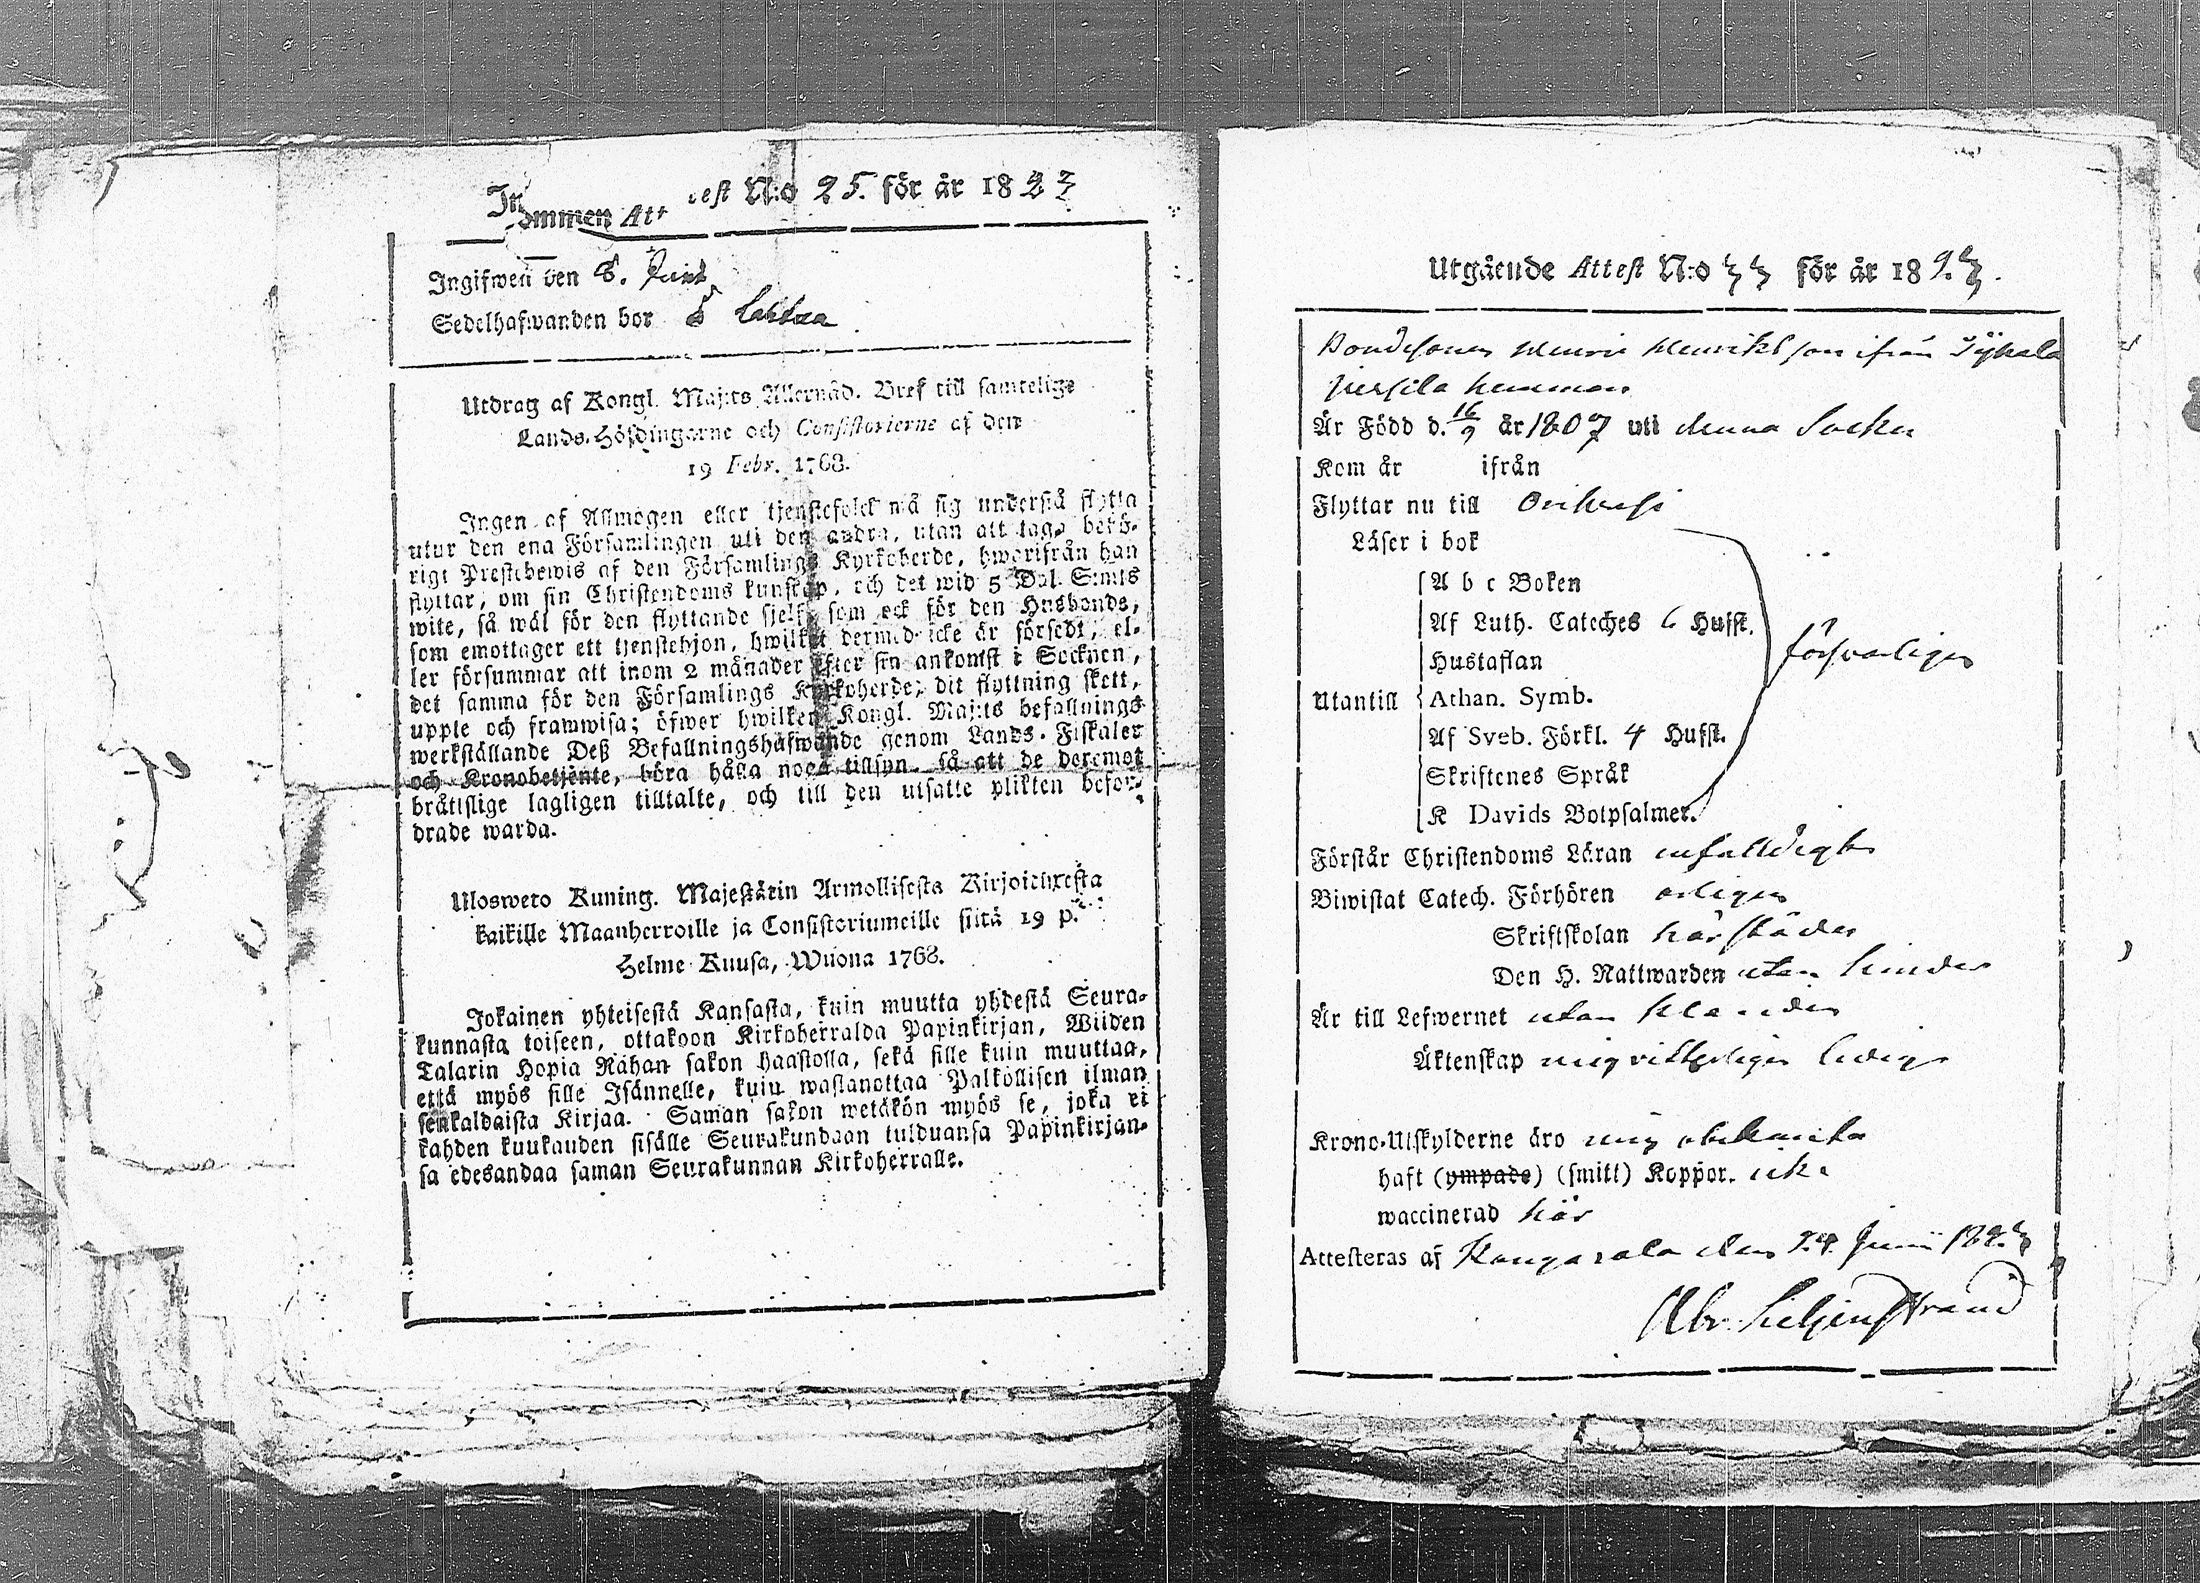 Inkommen Attest N:o 25. för år 1823
Ingifwen den 8. Juni
Sedelhafwanden bor
Utdrag af Kongl. Maj:ts Allernåd. Bref till samtelige
Lands-Höfdingarne och Consistorierne af den
19 Febr. 1768.
Ingen af Allmogen eller tjenstefolck må sig understå flytta
utur den ena Församlingen uti den andra, utan att taga behö-
rigt Prestebewis af den Församlings Kyrkoherde, hwarifrån han
flyttar, om sin Christendoms kunskap, och det wid 5 Dal. S:mts
wite, så wäl för den flyttande sjelf, som ock för den Husbonde,
som emottager ett tjenstehjon, hwilket dermed icke är försedt, el-
ler försummar att inom 2 månader efter sin ankomst i Socknen,
det samma för den Församlings Kyrkoherde, dit flyttning skett,
uppte och framwisa; öfwer hwilken Kongl. Maj:ts befallnings
werkställande Deß Befallningshafwande genom Lands-Fiskaler
och Kronobetjente, böra hålla noga tillsyn, så att de deremot
bråttslige lagligen tilltalte, och till den utsatte plikten befor-
drade warda.
Ulosweto Kuning. Majestätin Armollisesta Kirjoituxesta
kaikille Maanherroille ja Consistoriumeille siitä 19 p.
Helme-Kuusa, Wuona 1768.
Jokainen yhteisestä Kansasta, kuin muutta yhdestä Seura-
kunnasta toiseen, ottakoon Kirkoherralda Papinkirjan, Wiiden
Talarin Hopia Rahan sakon haastolla, sekä sille kuin muuttaa,
että myös sille Isännelle, kuin wastanottaa Palkollisen ilman
senkaldaista Kirjaa. Saman sakon wetäkön myös se, joka ei
kahden kuukauden sisälle Seurakundaan tulduansa Papinkirjan-
sa edesandaa saman Seurakunnan Kirkoherralle.
Utgående Attest N:o 33 för år 1823.
Bondesonen Henric Henriksson ifrån
hemman
Är Född d. 16/9 år 1807 uti denna Socken
Kom år ifrån
Flyttar nu till Orihvesi
Läser i bok
A b c Boken
Af Luth. Cateches 6 Hufst.
Hustaflan
försvarligen
Utantill Athan. Symb.
Af Sveb. Förkl. 4 Hufst.
Skriftenes Språk
K Davids Botpsalmer.
Förstår Christendoms Läran enfalldigt
Biwistat Catech. Förhören årligen
Skriftskolan härstädes
Den H. Nattwarden utan hinder
Är till Lefwernet utan klander
Äktenskap mig vitterligen ledig
Krono-Utskylderne äro mig obekanta
haft (ympade) (smitt) Koppor. icke
waccinerad här
Attesteras af Kangasala den 24 Junii 1823
Abr. Liljenstrand